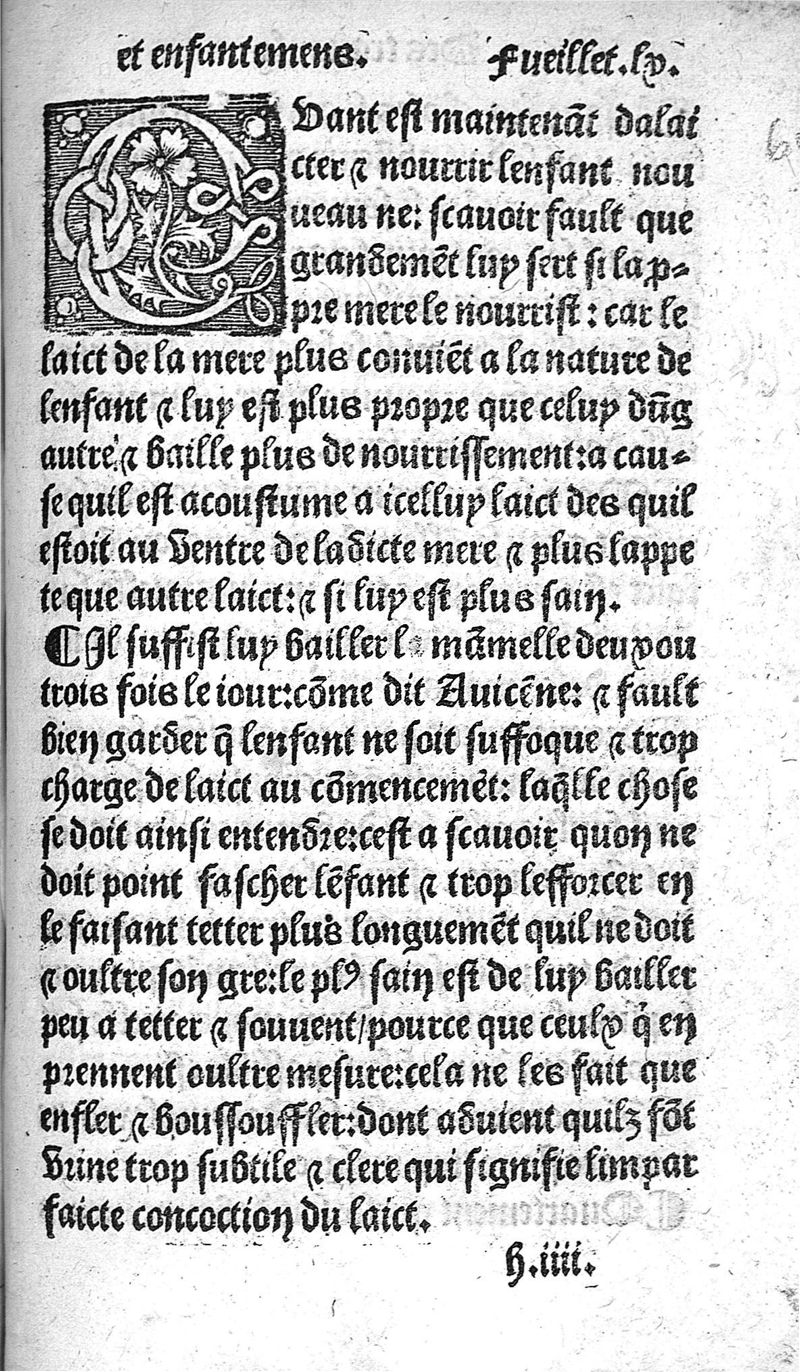 et enfantemens. Fueillet.lx.
QVant est maintenāt dalai
cter ⁊ nourrir lenfant nou
ueau ne: scauoir fault que
grandemēt luy sert si la p̱-
pre mere le nourrist : car le
laict de la mere plus conuiēt a la nature de
lenfant ⁊ luy est plus propre que celuy dūg
autre ⁊ baille plus de nourrissement:a cau-
se quil est acoustume a icelluy laict des quil
estoit au ventre de ladicte mere ⁊ plus lappe
te que autre laict:⁊ si luy est plus sain.
¶ Il suffist luy bailler l māmelle deux ou
trois fois le iour:cōme dit Auicēne: ⁊ fault
bien garder q̄ lenfant ne soit suffoque ⁊ trop
charge de laict au cōmencemēt: laq̄lle chose
se doit ainsi entendre:cest a scauoir quon ne
doit point fascher lēfant ⁊ trop lefforcer en
le faisant tetter plus longuemēt quil ne doit
⁊ oultre son gre:le plꝰ sain est de luy bailler
peu a tetter ⁊ souuent/pource que ceulx q̇ en
prennent oultre mesure:cela ne les fait que
enfler ⁊ boussouffler:dont aduient quilz fōt
vrine trop subtile ⁊ clere qui signifie limpar
faicte concoction du laict.
h.iiii.